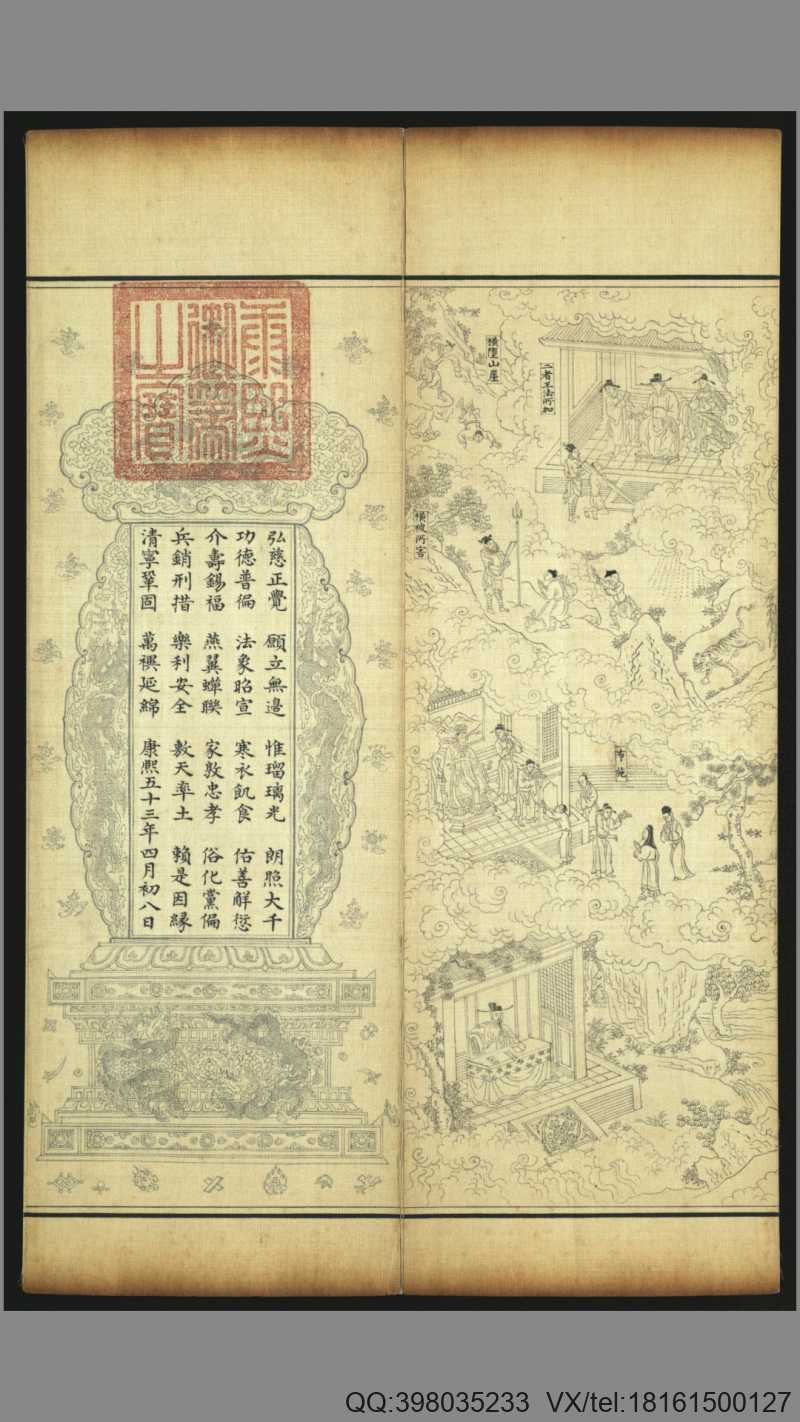 橫墮山崖
二者王法所加
布施
康熙
御筆
之寶
弘慈正覺 願立無邊 惟瑠璃光 朗照大千
功德普徧 法象昭宣 寒衣飢食 佑善解愆
介壽錫福 燕翼蟬聯 家敦忠孝 俗化黨偏
兵銷刑措 樂利安全 敷天率土 賴是因緣
清寧鞏固 萬禩延綿 康熙五十三年四月初八日
QQ:398035233 VX/tel:18161500127